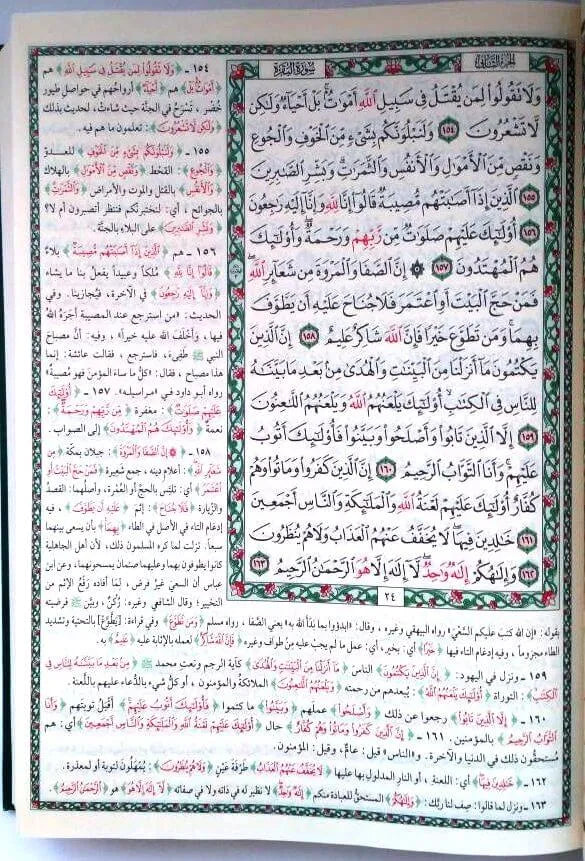 الجزء الثاني
سورة البقرة
وَلَا تَقُولُوا لِمَن يُقْتَلُ فِي سَبِيلِ اللَّهِ أَمْوَاتٌ بَلْ أَحْيَاءٌ وَلَٰكِن
لَّا تَشْعُرُونَ ١٥٤ وَلَنَبْلُوَنَّكُم بِشَيْءٍ مِّنَ الْخَوْفِ وَالْجُوعِ
وَنَقْصٍ مِّنَ الْأَمْوَالِ وَالْأَنفُسِ وَالثَّمَرَاتِ وَبَشِّرِ الصَّابِرِينَ
١٥٥ الَّذِينَ إِذَا أَصَابَتْهُم مُّصِيبَةٌ قَالُوا إِنَّا لِلَّهِ وَإِنَّا إِلَيْهِ رَاجِعُونَ
١٥٦ أُولَٰئِكَ عَلَيْهِمْ صَلَوَاتٌ مِّن رَّبِّهِمْ وَرَحْمَةٌ وَأُولَٰئِكَ
هُمُ الْمُهْتَدُونَ ١٥٧ ۞ إِنَّ الصَّفَا وَالْمَرْوَةَ مِن شَعَائِرِ اللَّهِ
فَمَنْ حَجَّ الْبَيْتَ أَوِ اعْتَمَرَ فَلَا جُنَاحَ عَلَيْهِ أَن يَطَّوَّفَ
بِهِمَا وَمَن تَطَوَّعَ خَيْرًا فَإِنَّ اللَّهَ شَاكِرٌ عَلِيمٌ ١٥٨ إِنَّ الَّذِينَ
يَكْتُمُونَ مَا أَنزَلْنَا مِنَ الْبَيِّنَاتِ وَالْهُدَىٰ مِن بَعْدِ مَا بَيَّنَّاهُ
لِلنَّاسِ فِي الْكِتَابِ أُولَٰئِكَ يَلْعَنُهُمُ اللَّهُ وَيَلْعَنُهُمُ اللَّاعِنُونَ
١٥٩ إِلَّا الَّذِينَ تَابُوا وَأَصْلَحُوا وَبَيَّنُوا فَأُولَٰئِكَ أَتُوبُ
عَلَيْهِمْ وَأَنَا التَّوَّابُ الرَّحِيمُ ١٦٠ إِنَّ الَّذِينَ كَفَرُوا وَمَاتُوا وَهُمْ
كُفَّارٌ أُولَٰئِكَ عَلَيْهِمْ لَعْنَةُ اللَّهِ وَالْمَلَائِكَةِ وَالنَّاسِ أَجْمَعِينَ
١٦١ خَالِدِينَ فِيهَا لَا يُخَفَّفُ عَنْهُمُ الْعَذَابُ وَلَا هُمْ يُنظَرُونَ
١٦٢ وَإِلَٰهُكُمْ إِلَٰهٌ وَاحِدٌ لَّا إِلَٰهَ إِلَّا هُوَ الرَّحْمَٰنُ الرَّحِيمُ ١٦٣
٢٤
١٥٤ - ﴿وَلَا تَقُولُوا لِمَن يُقْتَلُ فِي سَبِيلِ اللَّهِ﴾ هم
﴿أَمْوَاتٌ بَلْ﴾ هم ﴿أَحْيَاءٌ﴾ أرواحُهم في حواصل طيور
خُضْر، تَسْرَحُ في الجنَّة حيث شاءتْ، لحديث بذلك
﴿وَلَٰكِن لَّا تَشْعُرُونَ﴾: تعلمون ما هم فيه.
١٥٥ - ﴿وَلَنَبْلُوَنَّكُم بِشَيْءٍ مِّنَ الْخَوْفِ﴾ للعدوِّ
﴿وَالْجُوعِ﴾: القحط ﴿وَنَقْصٍ مِّنَ الْأَمْوَالِ﴾ بالهلاك
﴿وَالْأَنفُسِ﴾ بالقتل والموت والأمراض ﴿وَالثَّمَرَاتِ﴾
بالجوائح، أي: لنختبرنَّكم فننظر أتصبرون أم لا؟
﴿وَبَشِّرِ الصَّابِرِينَ﴾ على البلاءِ بالجنَّة.
١٥٦ - هم ﴿الَّذِينَ إِذَا أَصَابَتْهُم مُّصِيبَةٌ﴾: بلاءٌ
﴿قَالُوا إِنَّا لِلَّهِ﴾ مُلكاً وعبيداً يفعلُ بنا ما يشاء
﴿وَإِنَّا إِلَيْهِ رَاجِعُونَ﴾ في الآخرة، فيُجازينا. وفي
الحديث: «من استرجع عند المصيبة آجَرَهُ اللهُ
فيها، وأخْلَفَ الله عليه خيراً»، وفيه: أنَّ مصباحَ
النبي ﷺ طَفِىءَ، فاسترجع، فقالت عائشة: إنما
هذا مصباح، فقال: «كلُّ ما ساءَ المؤمنَ فهو مُصيبةٌ»
رواه أبو داود في «مراسيله». ١٥٧ - ﴿أُولَٰئِكَ
عَلَيْهِمْ صَلَوَاتٌ﴾: مغفرة ﴿مِّن رَّبِّهِمْ وَرَحْمَةٌ﴾:
نعمةٌ ﴿وَأُولَٰئِكَ هُمُ الْمُهْتَدُونَ﴾ إلى الصواب.
١٥٨ - ﴿۞ إِنَّ الصَّفَا وَالْمَرْوَةَ﴾: جبلان بمكَّة ﴿مِن
شَعَائِرِ اللَّهِ﴾: أعلام دينه، جمع شعيرة ﴿فَمَنْ حَجَّ الْبَيْتَ أَوِ
اعْتَمَرَ﴾ أي: تلبَّس بالحجِّ أو العُمْرة، وأصلُهما: القصدُ
والزِّيارة ﴿فَلَا جُنَاحَ﴾: إثمَ ﴿عَلَيْهِ أَن يَطَّوَّفَ﴾، فيه
إدغام التاء في الأصل في الطاء ﴿بِهِمَا﴾ بأن يسعى بينهما
سبعاً. نزلت لما كره المسلمون ذلك، لأن أهل الجاهلية
كانوا يطوفون بهما وعليهما صنمان يمسحونهما، وعن ابن
عباس أن السعي غيرُ فرض، لمَا أفاده رَفعُ الإثم من
التخيير؛ وقال الشافعي وغيره: رُكنٌ، وبيَّن ﷺ فرضيته
بقوله: «إن الله كتبَ عليكم السَّعْيَ» رواه البيهقي وغيره، وقال: «ابدؤوا بما بَدَأ الله به» يعني الصَّفا، رواه مسلم ﴿وَمَن تَطَوَّعَ﴾ وفي قراءة: [يَطَّوَّعْ] بالتحتية وتشديد
الطاء مجزوماً، وفيه إدغام التاء فيها ﴿خَيْرًا﴾ أي: بخير، أي: عمل ما لم يجبْ عليه من طواف وغيره ﴿فَإِنَّ اللَّهَ شَاكِرٌ﴾ لعمله بالإثابة عليه ﴿عَلِيمٌ﴾ به.
١٥٩ - ونزل في اليهود: ﴿إِنَّ الَّذِينَ يَكْتُمُونَ﴾ الناسَ ﴿مَا أَنزَلْنَا مِنَ الْبَيِّنَاتِ وَالْهُدَىٰ﴾ كآية الرجم ونعتِ محمدٍ ﷺ ﴿مِن بَعْدِ مَا بَيَّنَّاهُ لِلنَّاسِ فِي
الْكِتَابِ﴾: التوراة ﴿أُولَٰئِكَ يَلْعَنُهُمُ اللَّهُ﴾: يُبعدهم من رحمته ﴿وَيَلْعَنُهُمُ اللَّاعِنُونَ﴾ الملائكةُ والمؤمنون، أو كل شيء بالدُّعاء عليهم باللَّعنة.
١٦٠ - ﴿إِلَّا الَّذِينَ تَابُوا﴾: رجعوا عن ذلك ﴿وَأَصْلَحُوا﴾ عملَهم ﴿وَبَيَّنُوا﴾ ما كتموا ﴿فَأُولَٰئِكَ أَتُوبُ عَلَيْهِمْ﴾: أقبلُ توبتَهم ﴿وَأَنَا
التَّوَّابُ الرَّحِيمُ﴾ بالمؤمنين. ١٦١ - ﴿إِنَّ الَّذِينَ كَفَرُوا وَمَاتُوا وَهُمْ كُفَّارٌ﴾ حال ﴿أُولَٰئِكَ عَلَيْهِمْ لَعْنَةُ اللَّهِ وَالْمَلَائِكَةِ وَالنَّاسِ أَجْمَعِينَ﴾ أي: هم
مُستحقُّون ذلك في الدنيا والآخرة. و«الناس» قيل: عامٌّ، وقيل: المؤمنون.
١٦٢ - ﴿خَالِدِينَ فِيهَا﴾ أي: اللعنةِ، أو النارِ المدلول بها عليها ﴿لَا يُخَفَّفُ عَنْهُمُ الْعَذَابُ﴾ طَرْفَةَ عَيْنٍ ﴿وَلَا هُمْ يُنظَرُونَ﴾: يُمْهَلُون لتوبة أو لمعذرة.
١٦٣ - ونزل لما قالوا: صِف لنا ربَّك: ﴿وَإِلَٰهُكُمْ﴾ المستحقُّ للعبادة منكم ﴿إِلَٰهٌ وَاحِدٌ﴾ لا نظيرَ له في ذاته ولا في صفاته ﴿لَّا إِلَٰهَ إِلَّا هُوَ﴾ هو ﴿الرَّحْمَٰنُ الرَّحِيمُ﴾.